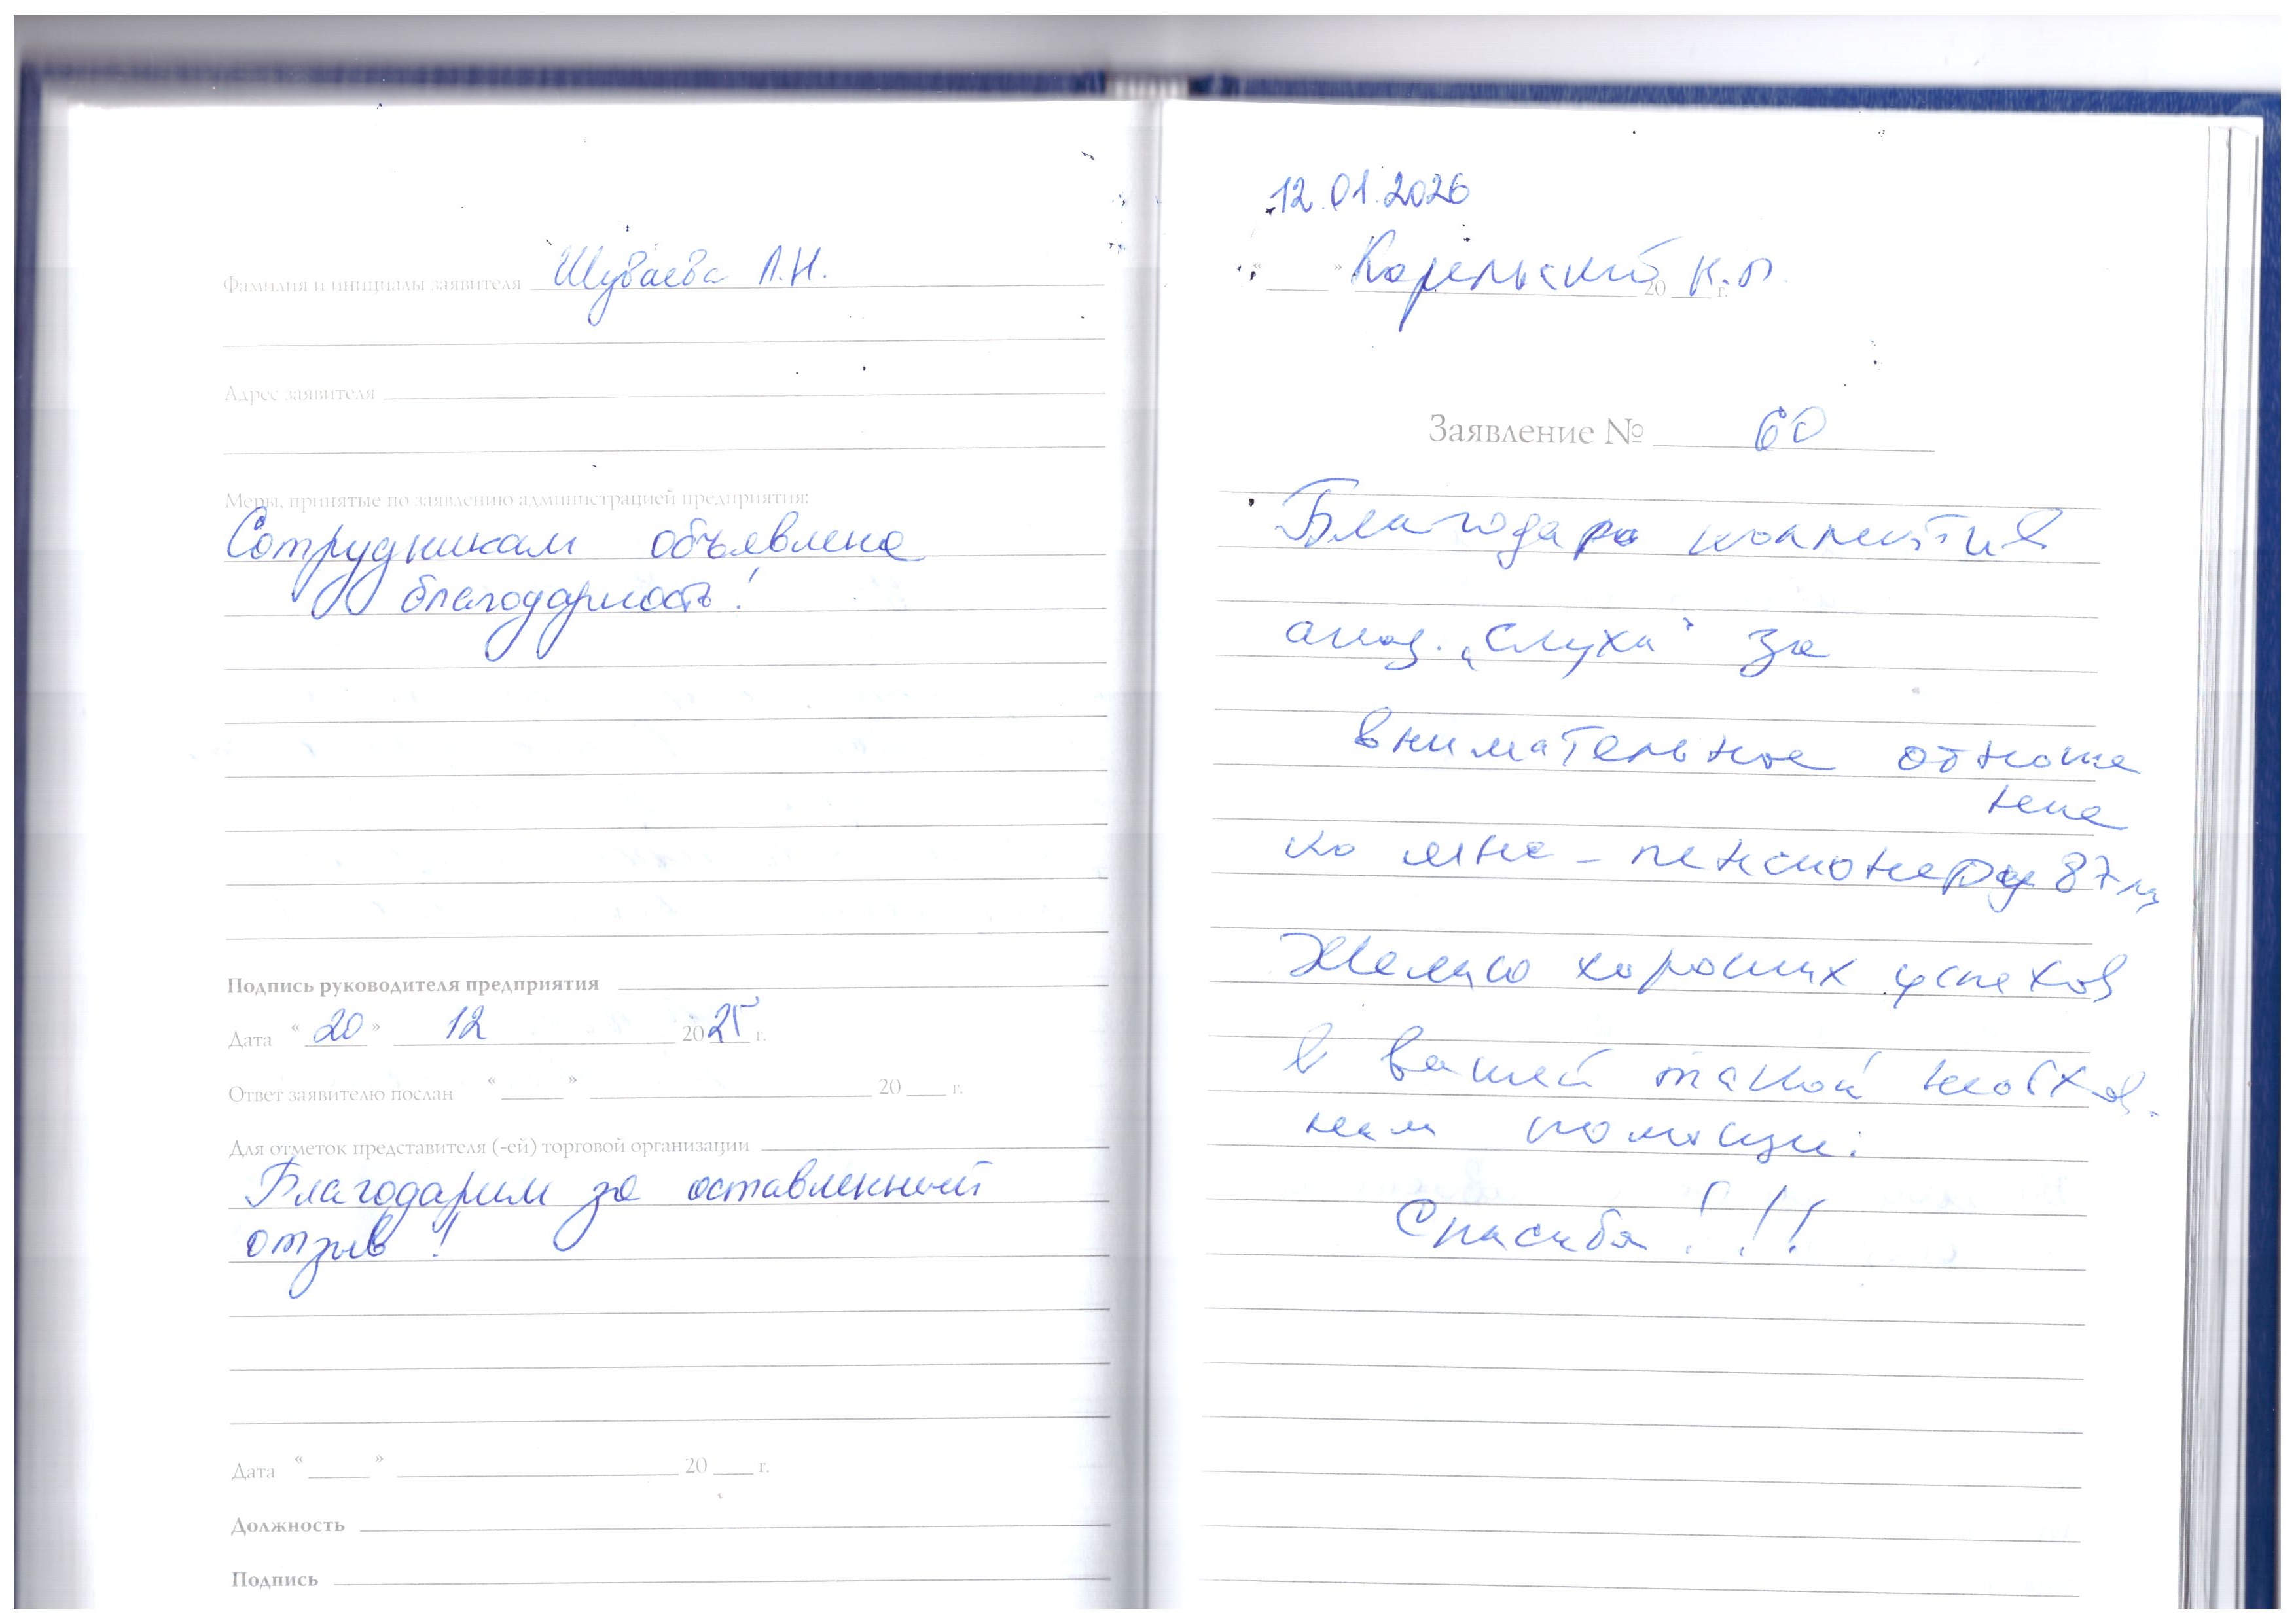 Фамилия и инициалы заявителя Шуваева Л.Н.
Адрес заявителя
Меры, принятые по заявлению администрацией предприятия:
Сотрудникам объявлена
благодарность!
Подпись руководителя предприятия
Дата "20" 12 2025 г.
Ответ заявителю послан " " 20 г.
Для отметок представителя (-ей) торговой организации
Благодарим за оставленный
отзыв!
Дата " " 20 г.
Должность
Подпись
12.01.2026
" " Карельский 20 г. К.П.
Заявление № 60
Благодарю коллектив
"Слуха" за
внимательное отноше
ние
ко мне - пенсионеру 87
Желаю хороших успехов
в вашей такой необход.
нам помощи.
Спасибо!!!